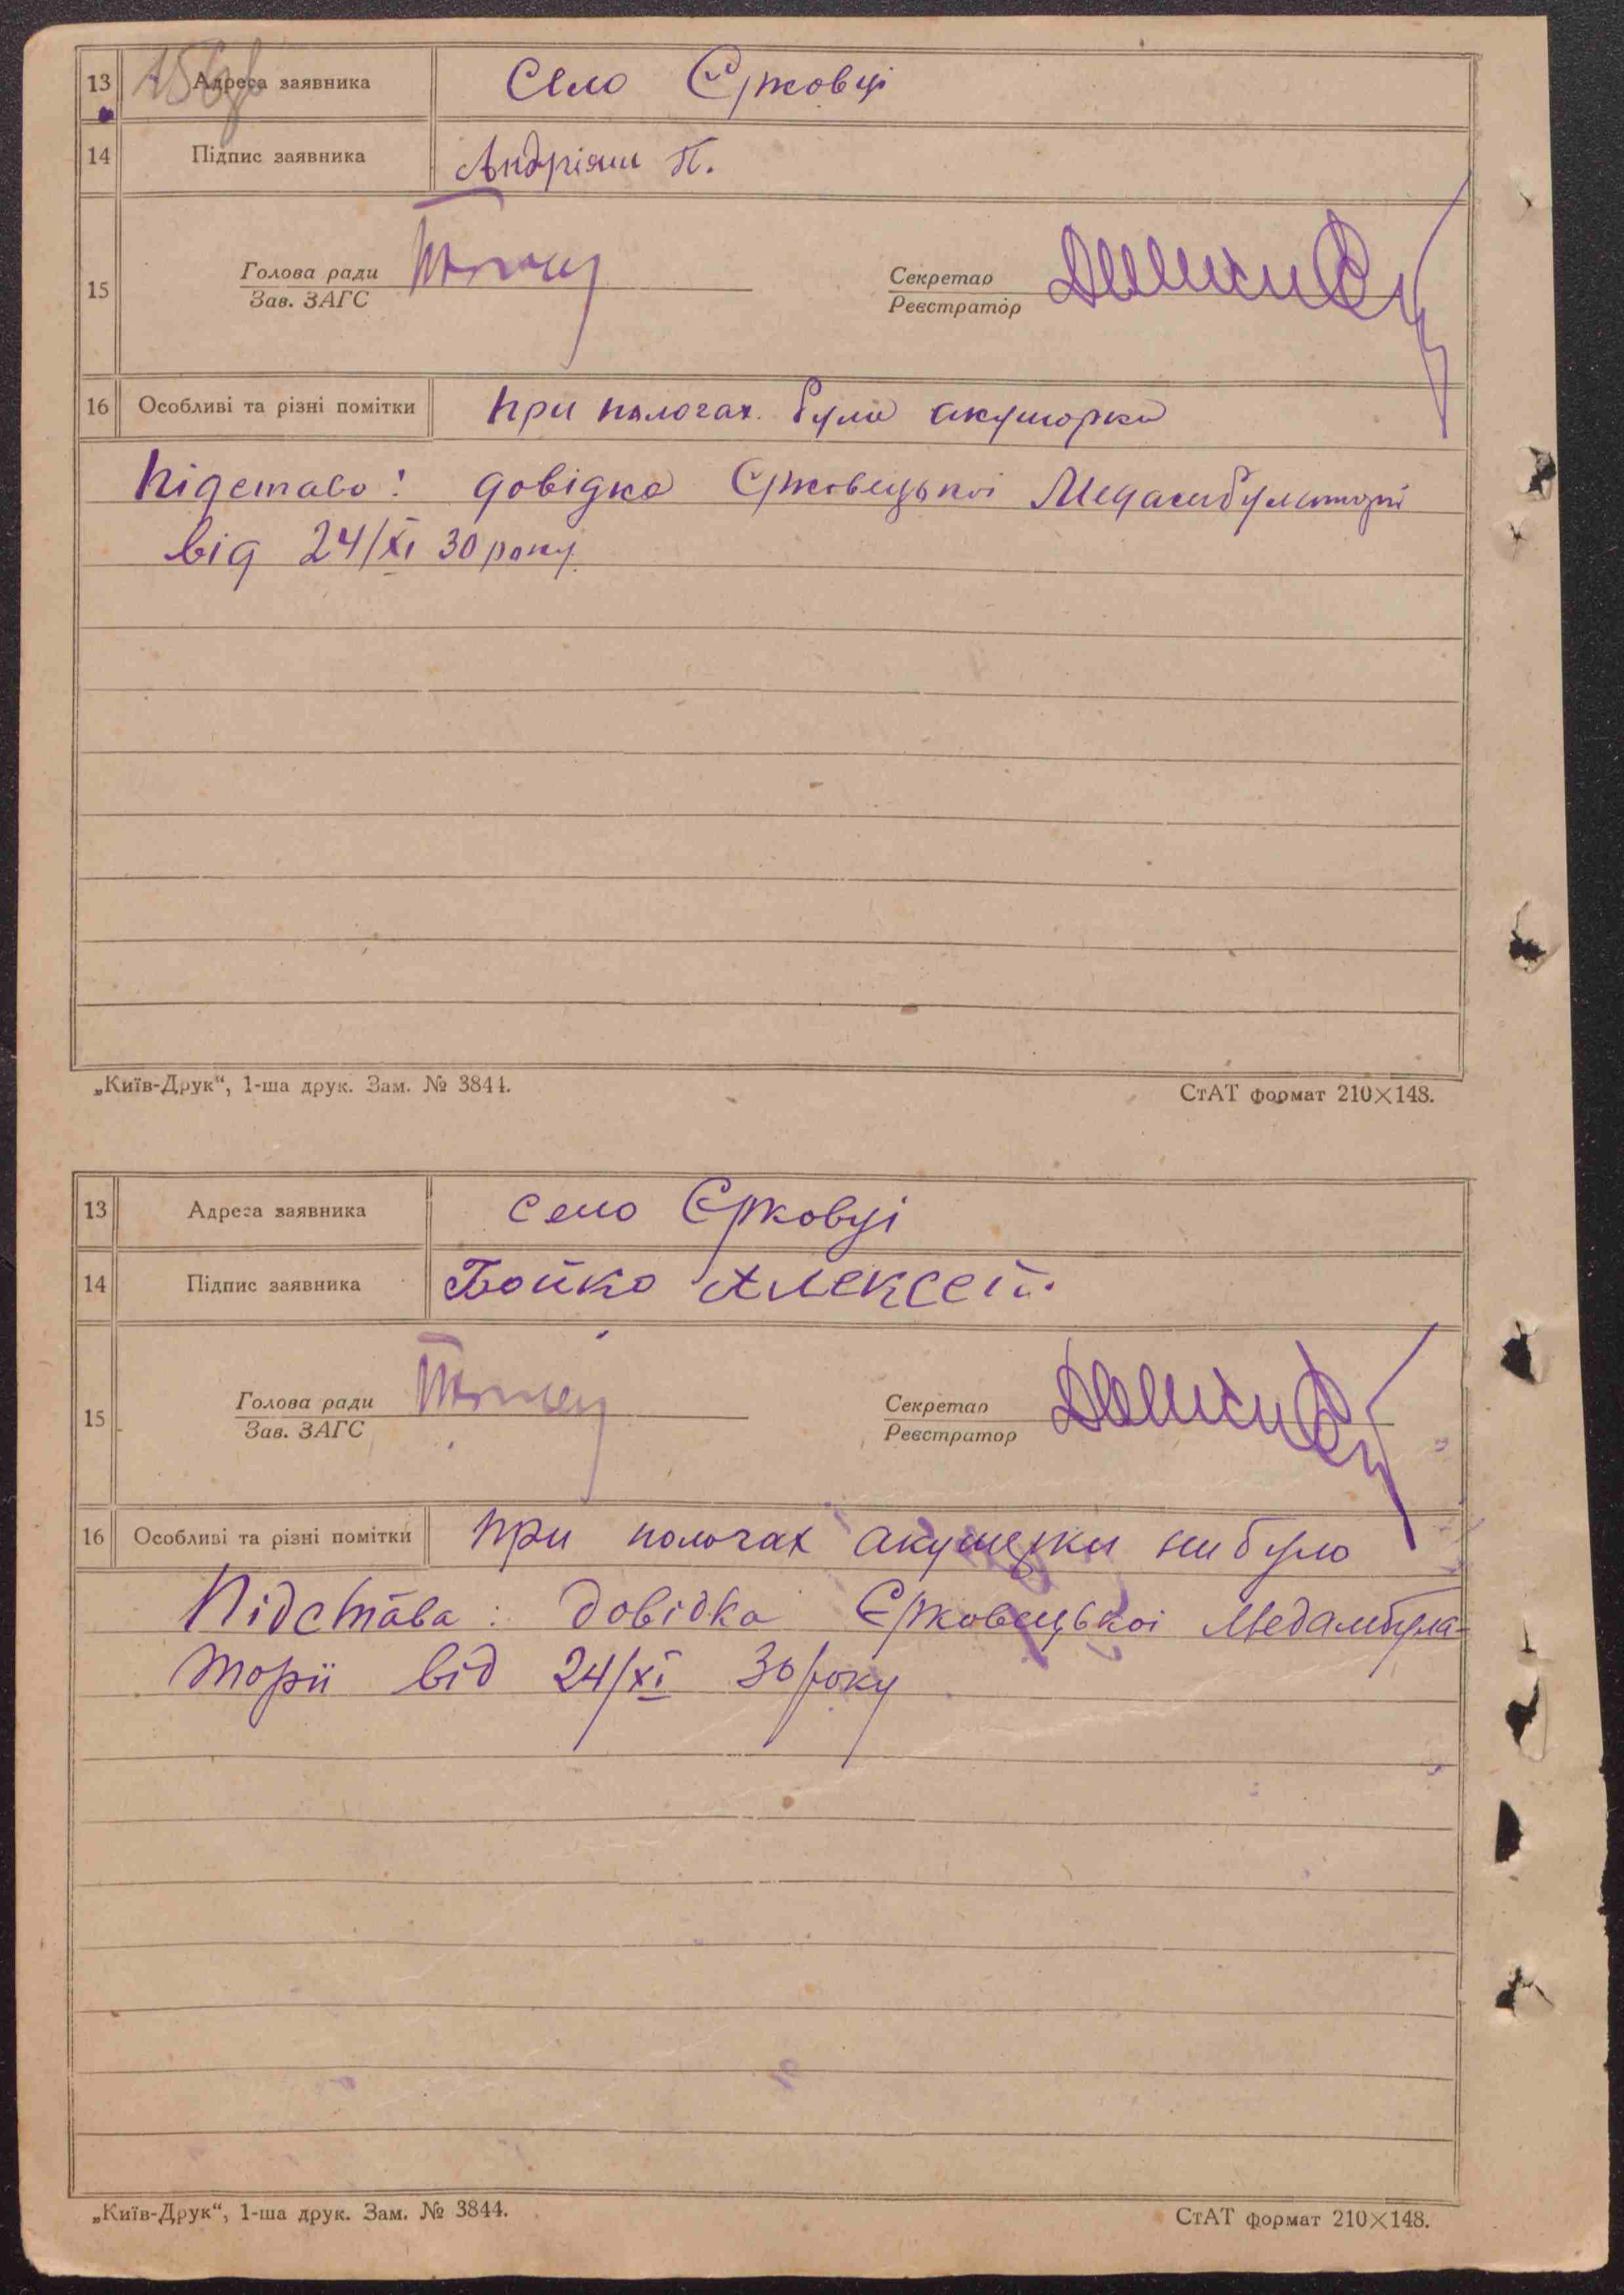 13 Адреса заявника Село Єрковці
14 Підпис заявника Андріяш П.
15 Голова ради Секретар
Зав. ЗАГС Реєстратор
16 Особливі та різні помітки при пологах була акушорка
Підстава: довідка Єрковецької Медамбулаторії
від 24/XI 30 року
„Київ-Друк“, 1-ша друк. Зам. № 3844. СтАТ формат 210×148.
13 Адреса заявника село Єрковці
14 Підпис заявника Бойко Алексей.
15 Голова ради Секретар
Зав. ЗАГС Реєстратор
16 Особливі та різні помітки при пологах акушерки ни було
Підстава: довідка Єрковецької Медамбула-
торії від 24/XI 30 року
„Київ-Друк“, 1-ша друк. Зам. № 3844. СтАТ формат 210×148.